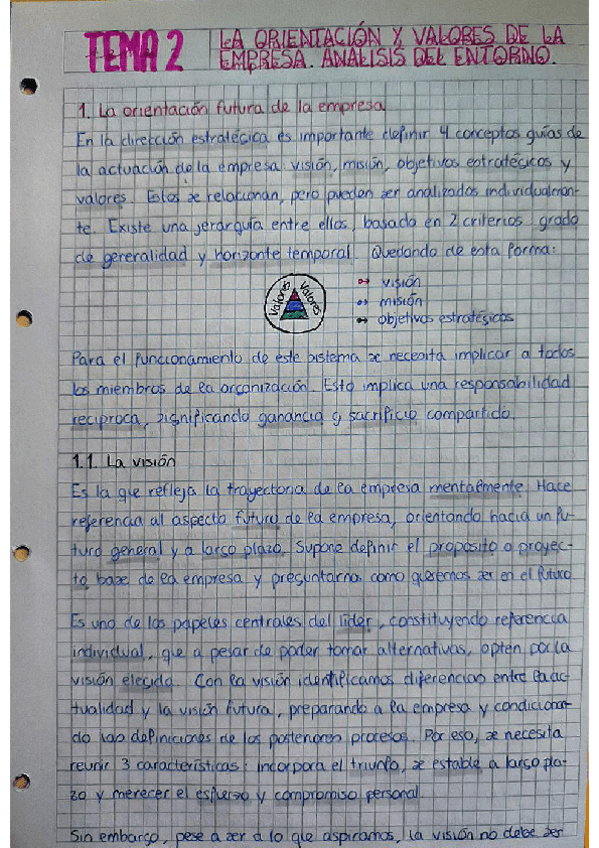 TEMA 2
LA ORIENTACIÓN Y VALORES DE LA
EMPRESA. ANÁLISIS DEL ENTORNO.
1. La orientación futura de la empresa
En la dirección estratégica es importante definir 4 conceptos guías de
la actuación de la empresa: visión, misión, objetivos estratégicos y
valores. Estos se relacionan, pero pueden ser analizados individualmen-
te. Existe una jerarquía entre ellos, basado en 2 criterios: grado
de generalidad y horizonte temporal. Quedando de esta forma:
Valores Valores
visión
misión
objetivos estratégicos
Para el funcionamiento de este sistema se necesita implicar a todos
los miembros de la organización. Esto implica una responsabilidad
recíproca, significando ganancia y sacrificio compartido.
1.1. La visión
Es la que refleja la trayectoria de la empresa mentalmente. Hace
referencia al aspecto futuro de la empresa, orientando hacia un fu-
turo general y a largo plazo. Supone definir el propósito o proyec-
to base de la empresa y preguntarnos como queremos ser en el futuro.
Es uno de los papeles centrales del líder, constituyendo referencia
individual, que a pesar de poder tomar alternativas, opten por la
visión elegida. Con la visión identificamos diferencias entre la ac-
tualidad y la visión futura, preparando a la empresa y condicionan-
do las definiciones de los posteriores procesos. Por eso, se necesita
reunir 3 características: incorpora el triunfo, se estable a largo pla-
zo y merecer el esfuerzo y compromiso personal.
Sin embargo, pese a ser a lo que aspiramos, la visión no debe ser